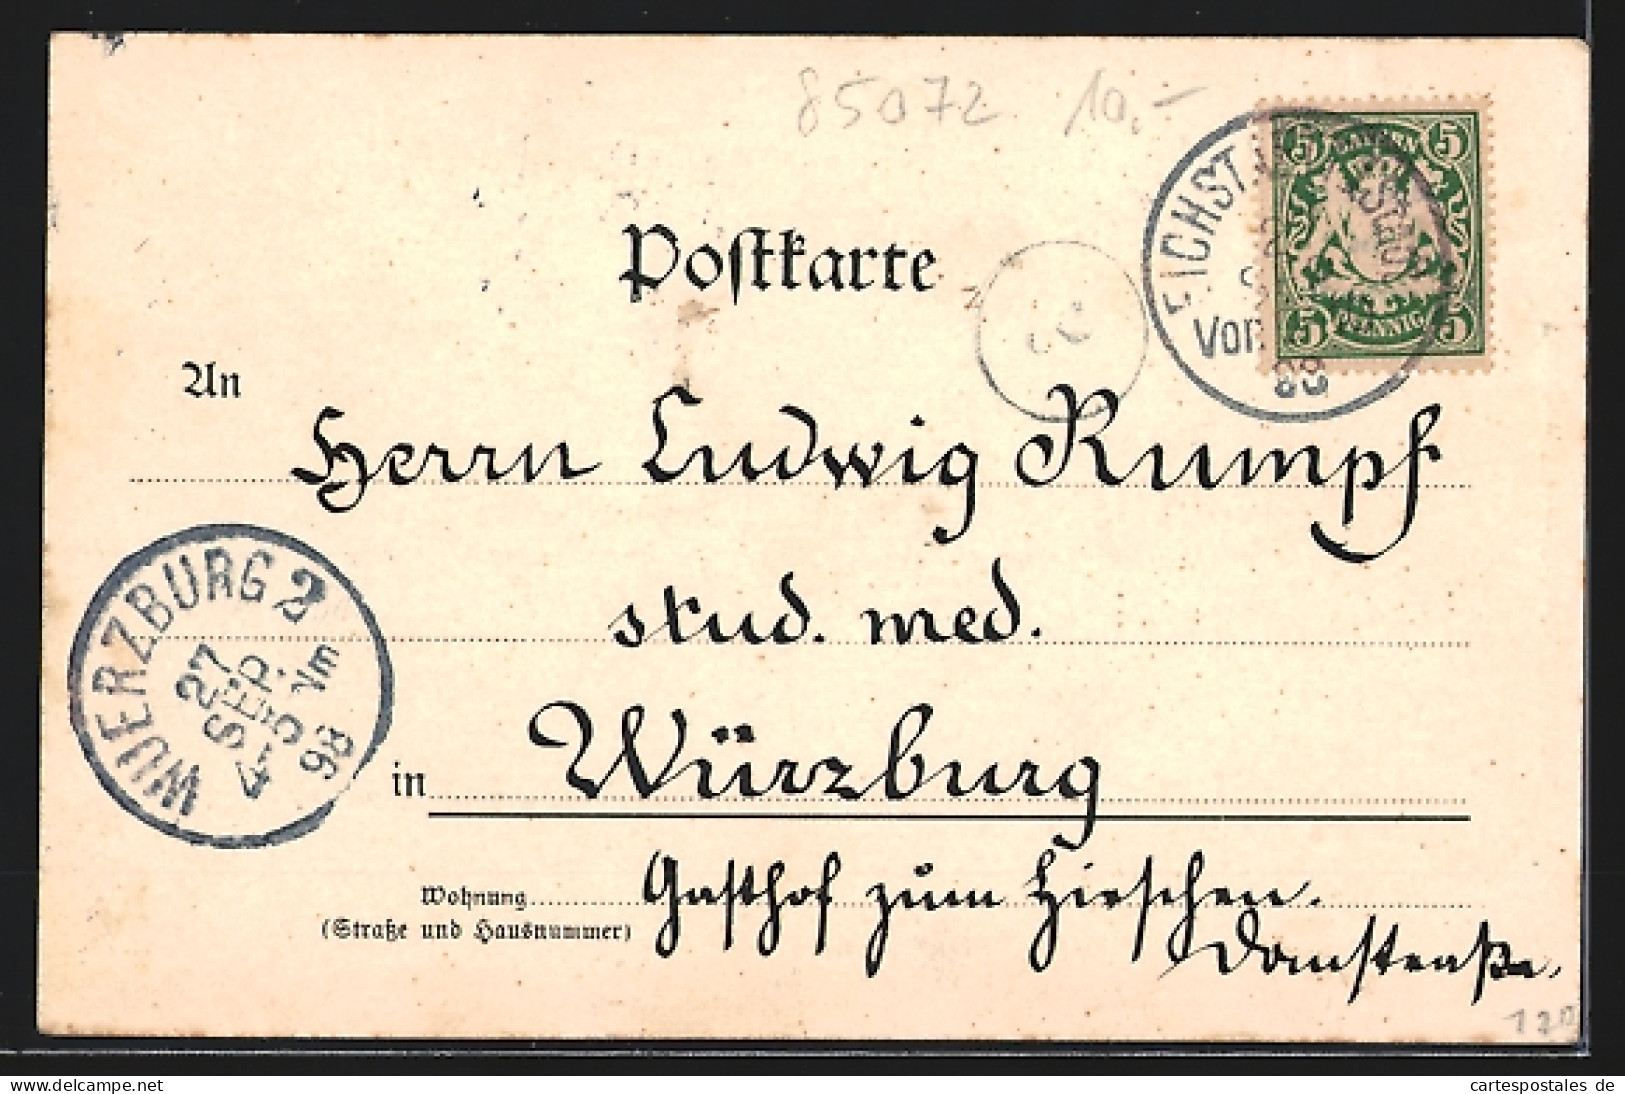 85072 10,-
Postkarte
5 BAYERN 5
5 PFENNIG 5
EICHST
Vor
98
An
Herrn Ludwig Rumpf
stud. med.
WUERZBURG 2
27
SEP.
4-5 Vm
98
in Würzburg
Wohnung Gasthof zum Hirschen.
(Straße und Hausnummer)
Domstraße.
120
Ihre Bestell-Nr.: AK 85072
cartespostales de